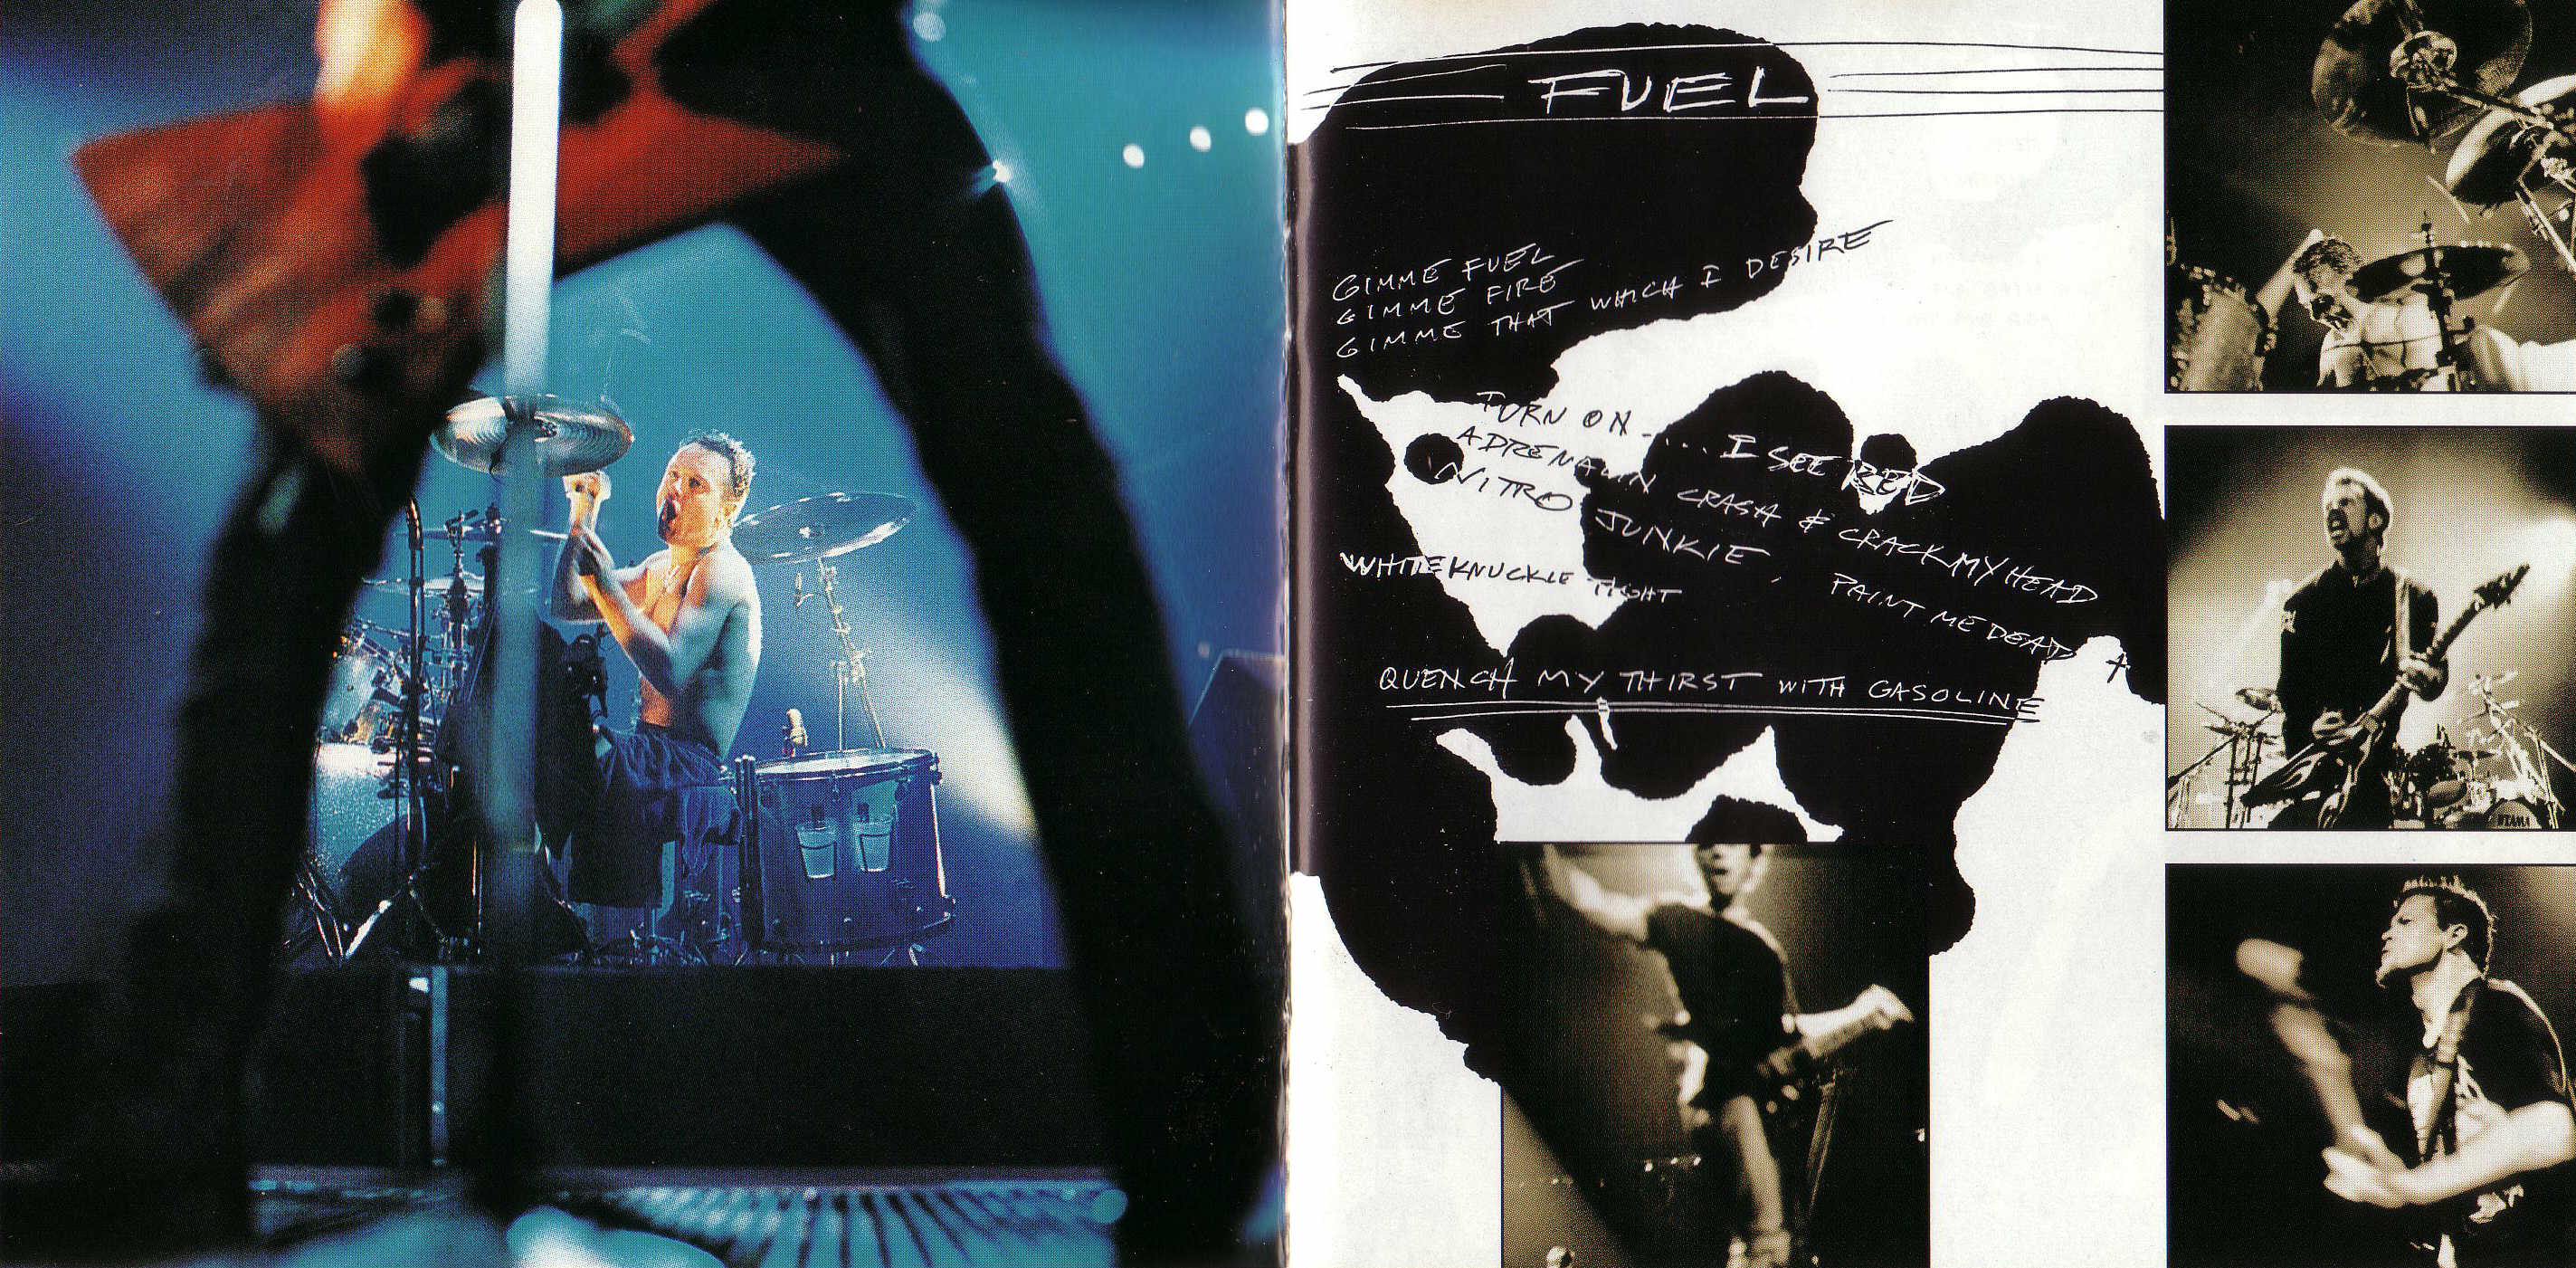 FUEL
GIMME FUEL
GIMME FIRE
GIMME THAT WHICH I DESIRE
TURN ON.... I SEE RED
ADRENALIN CRASH & CRACK MY HEAD
NITRO JUNKIE, PAINT ME DEAD +
WHITEKNUCKLE TIGHT
QUENCH MY THIRST WITH GASOLINE
TAMA